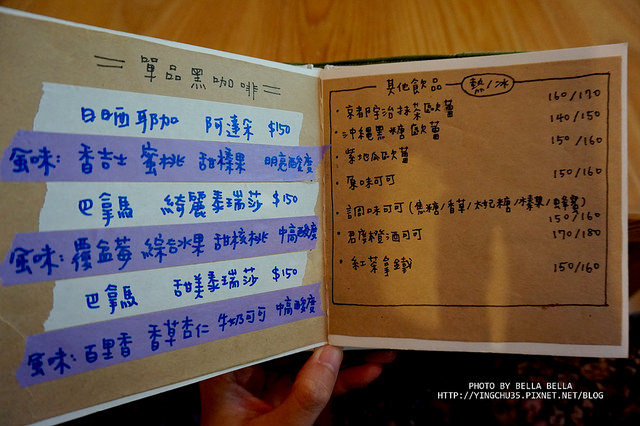 單品黑咖啡
日晒耶加 阿達朵 $150
風味: 香吉士 蜜桃 甜榛果 明亮酸度
巴拿馬 綺麗泰瑞莎 $150
風味: 覆盆莓 綜合水果 甜核桃 中高酸度
巴拿馬 甜美泰瑞莎 $150
風味: 百里香 香草杏仁 牛奶可可 中高酸度
其他飲品 熱/冰
·京都宇治抹茶歐蕾 160/170
·沖繩黑糖歐蕾 140/150
·紫地瓜歐蕾 150/160
·原味可可 150/160
·調味可可(焦糖/香草/太妃糖/榛果/蜂蜜) 150/160
·君度橙酒可可 170/180
·紅茶拿鐵 150/160
PHOTO BY BELLA BELLA
HTTP://YINGCHU35.PIXNET.NET/BLOG